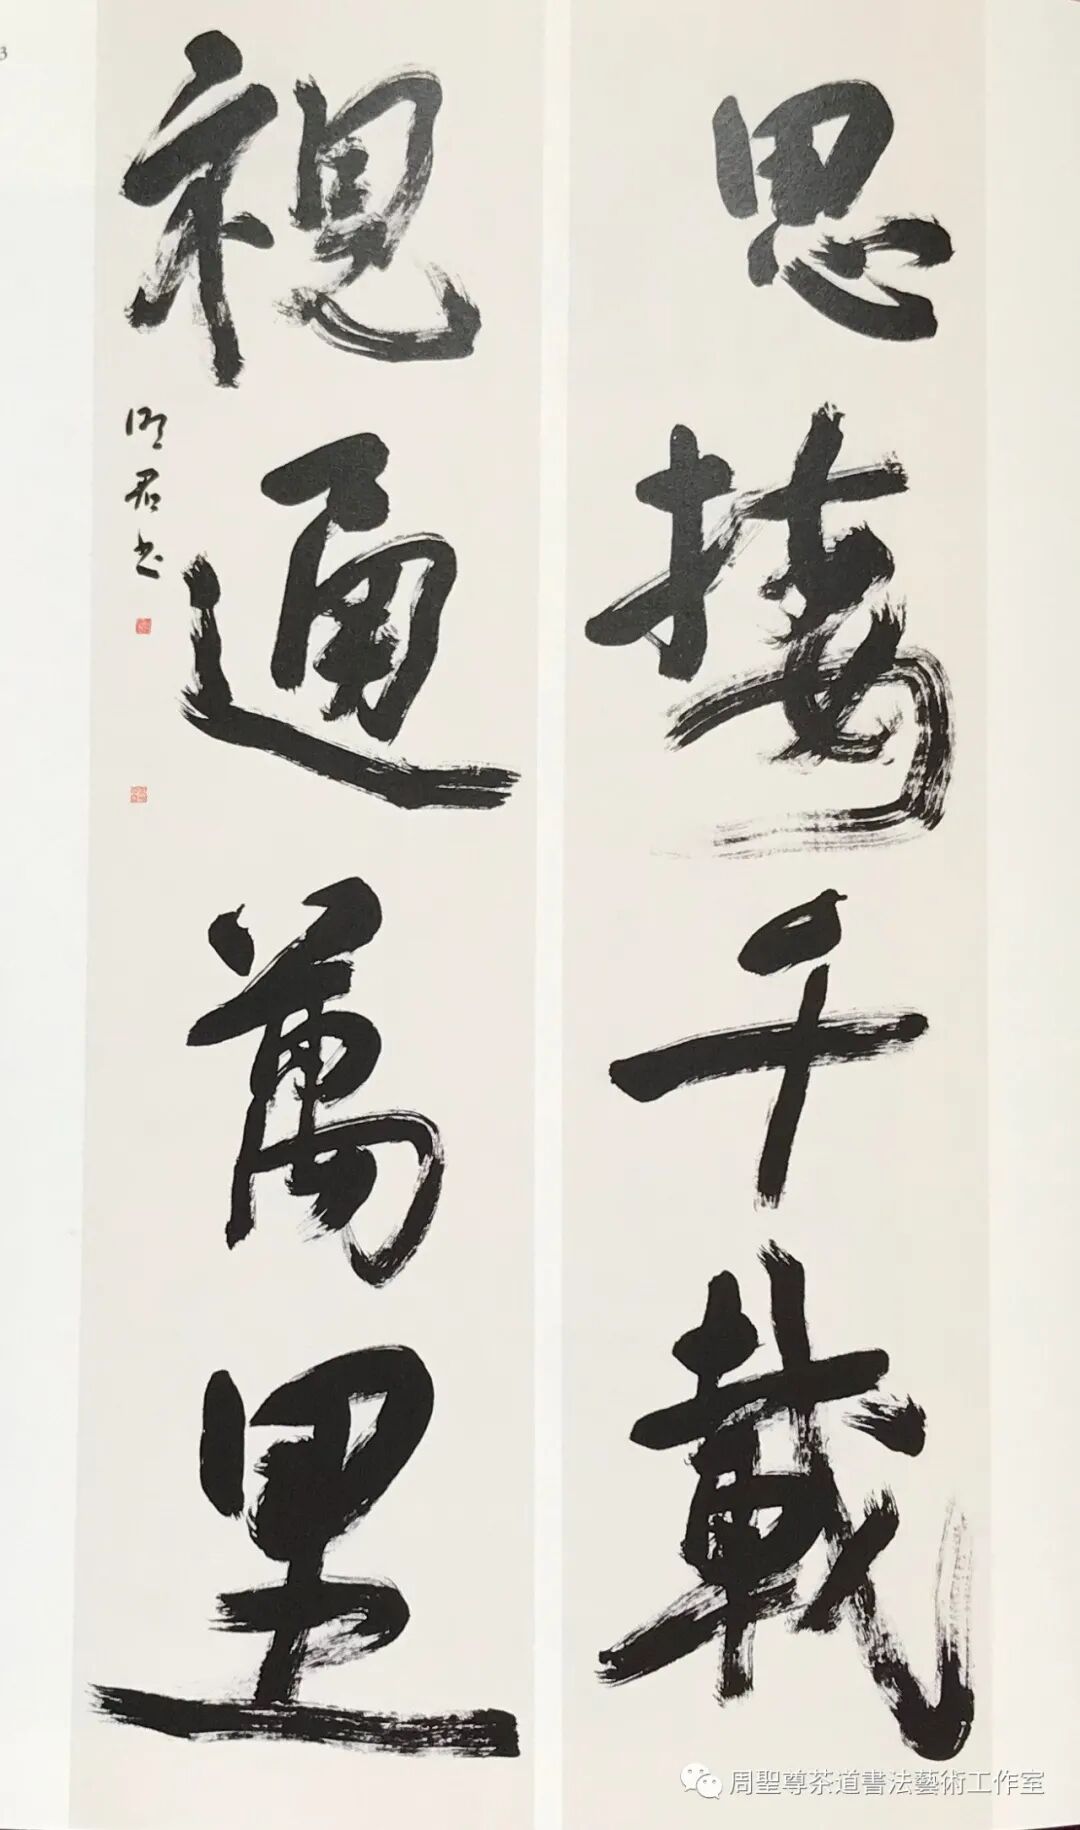 3
思接千載
視通萬里
明君书
周聖尊茶道書法藝術工作室